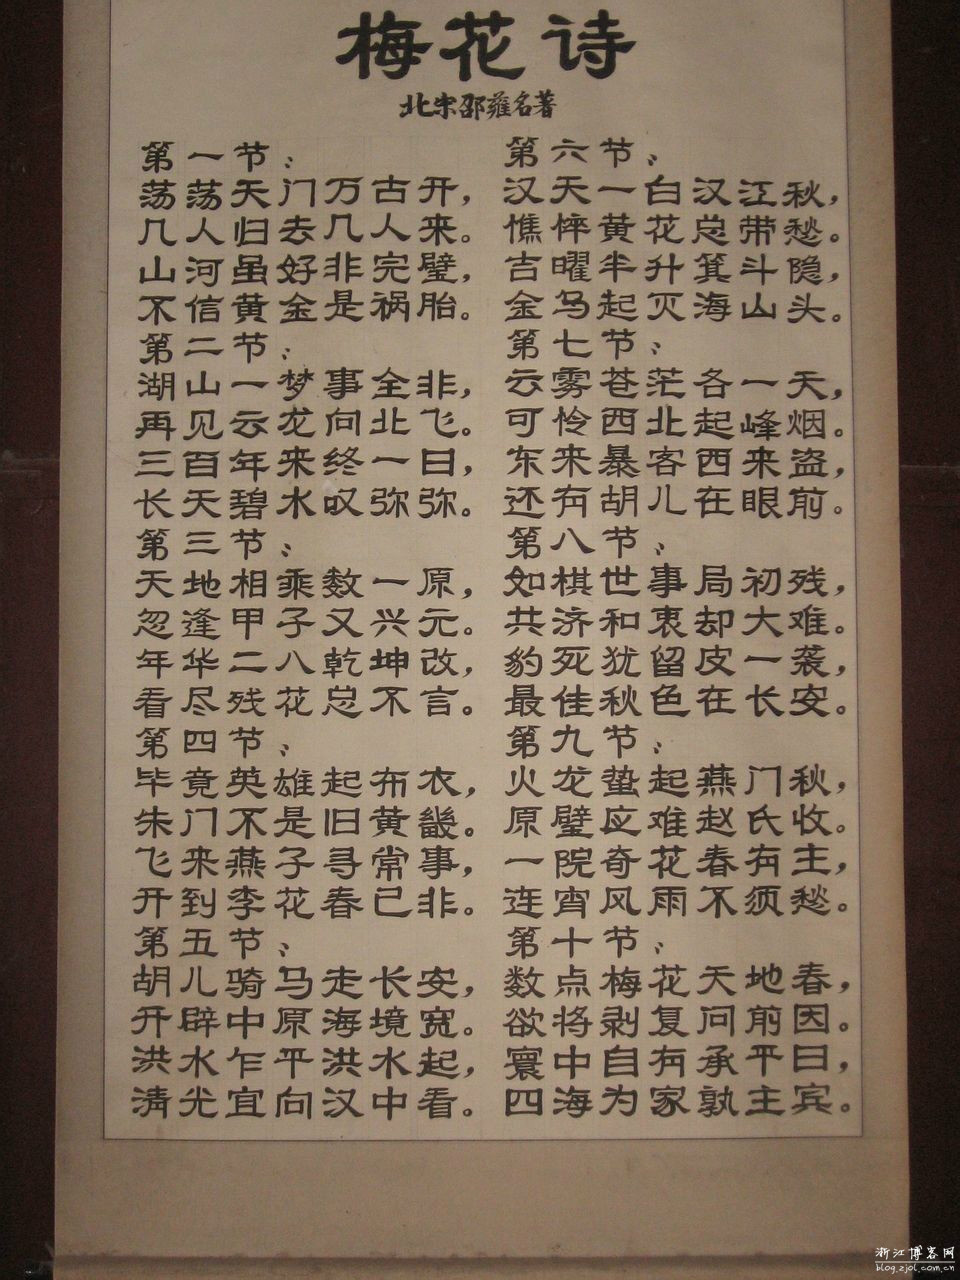 梅花诗
北宋邵雍名著
第一节：
荡荡天门万古开，
几人归去几人来。
山河虽好非完璧，
不信黄金是祸胎。
第二节：
湖山一梦事全非，
再见云龙向北飞。
三百年来终一日，
长天碧水叹弥弥。
第三节：
天地相乘数一原，
忽逢甲子又兴元。
年华二八乾坤改，
看尽残花总不言。
第四节：
毕竟英雄起布衣，
朱门不是旧黄畿。
飞来燕子寻常事，
开到李花春已非。
第五节：
胡儿骑马走长安，
开辟中原海境宽。
洪水乍平洪水起，
清光宜向汉中看。
第六节：
汉天一白汉江秋，
憔悴黄花总带愁。
吉曜半升箕斗隐，
金乌起灭海山头。
第七节：
云雾苍茫各一天，
可怜西北起峰烟。
东来暴客西来盗，
还有胡儿在眼前。
第八节：
如棋世事局初残，
共济和衷却大难。
豹死犹留皮一袭，
最佳秋色在长安。
第九节：
火龙蛰起燕门秋，
原璧应难赵氏收。
一院奇花春有主，
连宵风雨不须愁。
第十节：
数点梅花天地春，
欲将剥复问前因。
寰中自有承平日，
四海为家孰主宾。
浙江博客网
blog.zjol.com.cn